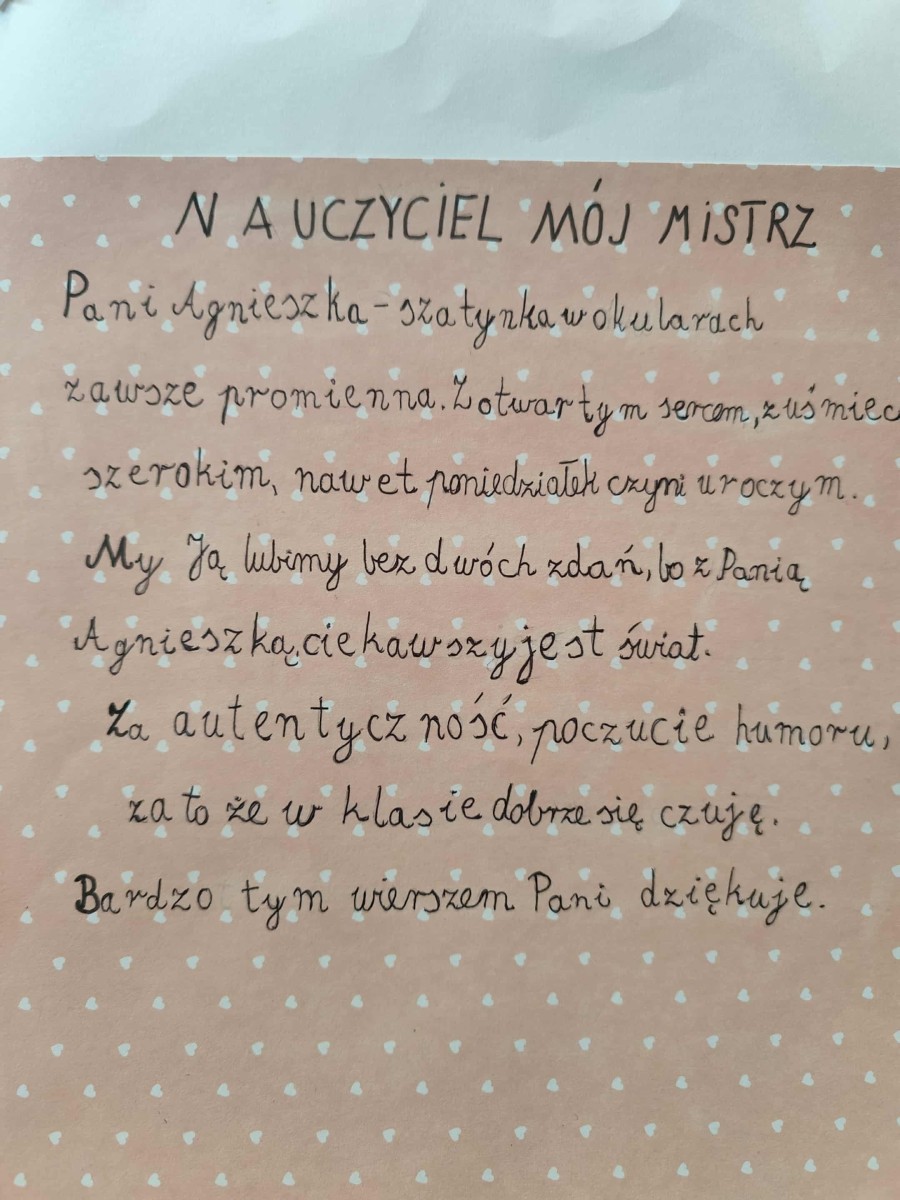 NAUCZYCIEL MÓJ MISTRZ
Pani Agnieszka - szatynka w okularach
zawsze promienna. Z otwartym sercem, z uśmiec
szerokim, nawet poniedziałek czyni uroczym.
My Ją lubimy bez dwóch zdań, bo z Panią
Agnieszką, ciekawszy jest świat.
Za autentyczność, poczucie humoru,
za to że w klasie dobrze się czuję.
Bardzo tym wierszem Pani dziękuje.